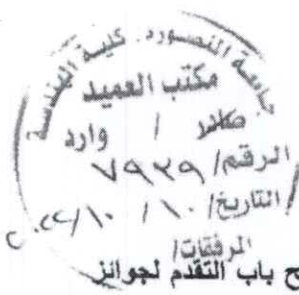 جامعة المنصورة. كلية الهندسة
مكتب العميد
صادر / وارد
الرقم/ ٧٩٢٩
التاريخ/ ١٠/ ١٠/ ٢٠٢٢
المرفقات/
ح باب التقدم لجوائز